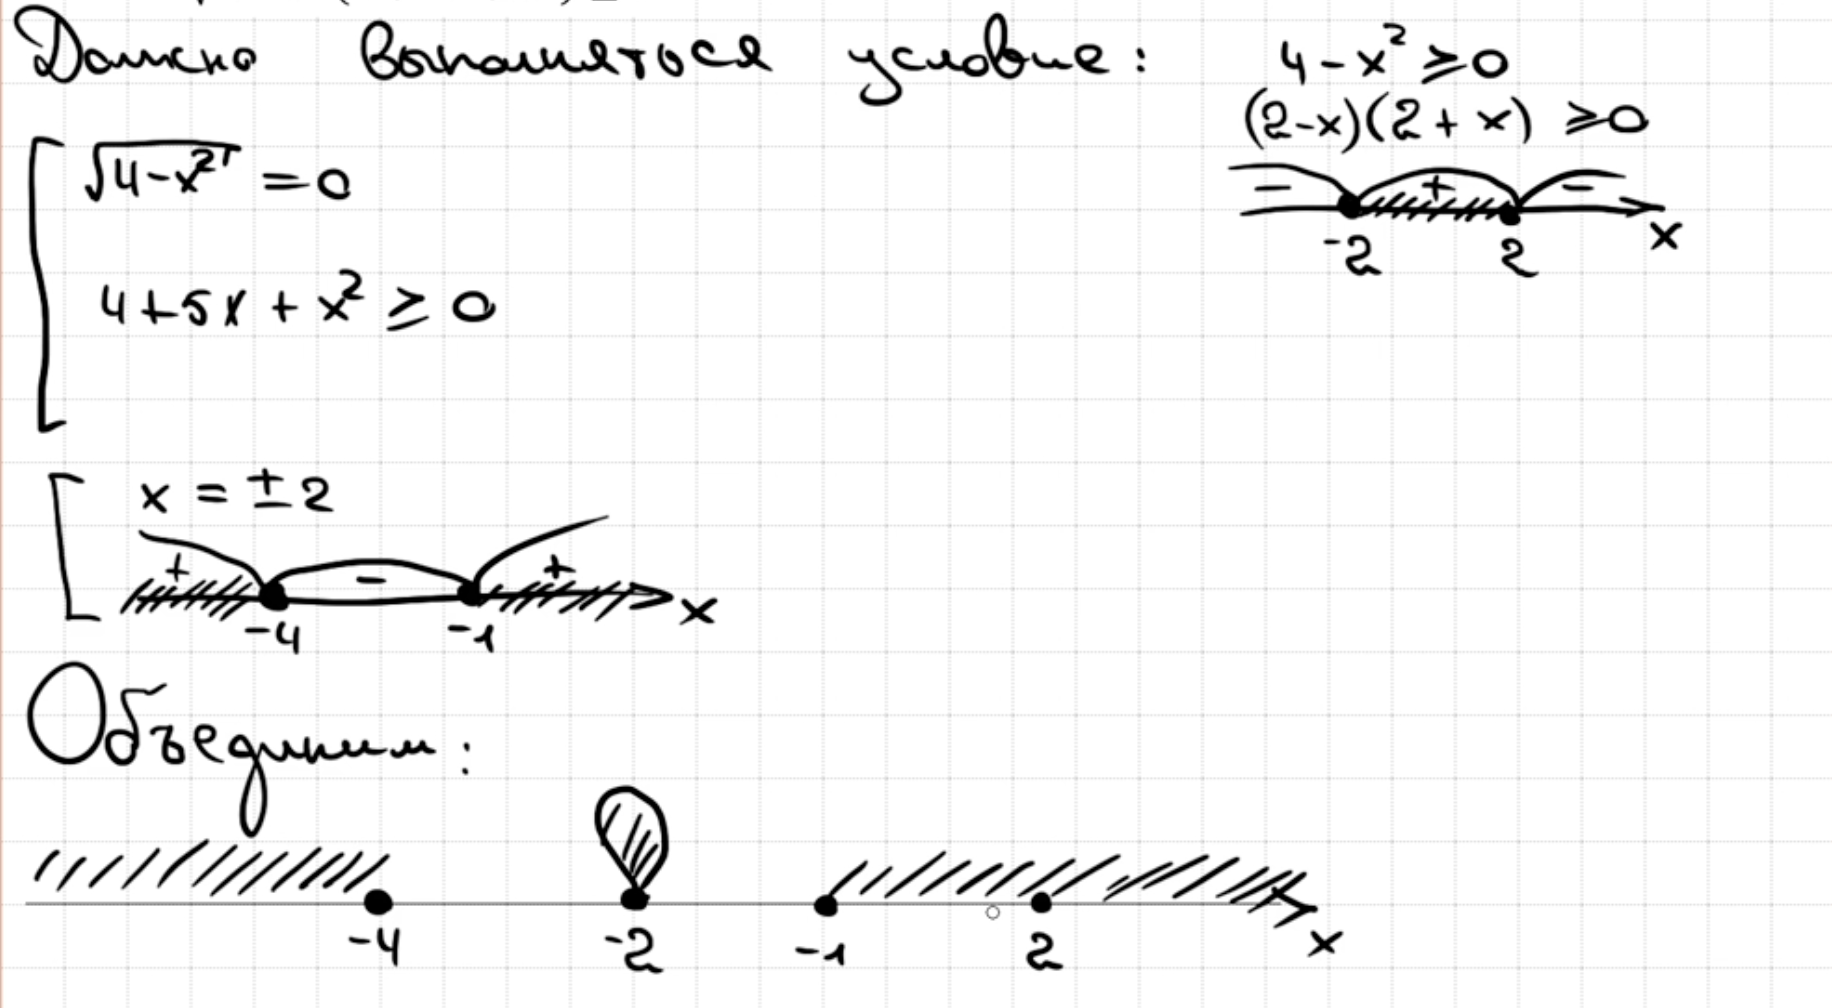 Должно выполняться условие:
4-x²≥0
(2-x)(2+x) ≥0
- + -
-2 2 x
√4-x² =0
4+5x+x² ≥ 0
x = ±2
+ - +
-4 -1 x
Объединим:
-4 -2 -1 2 x